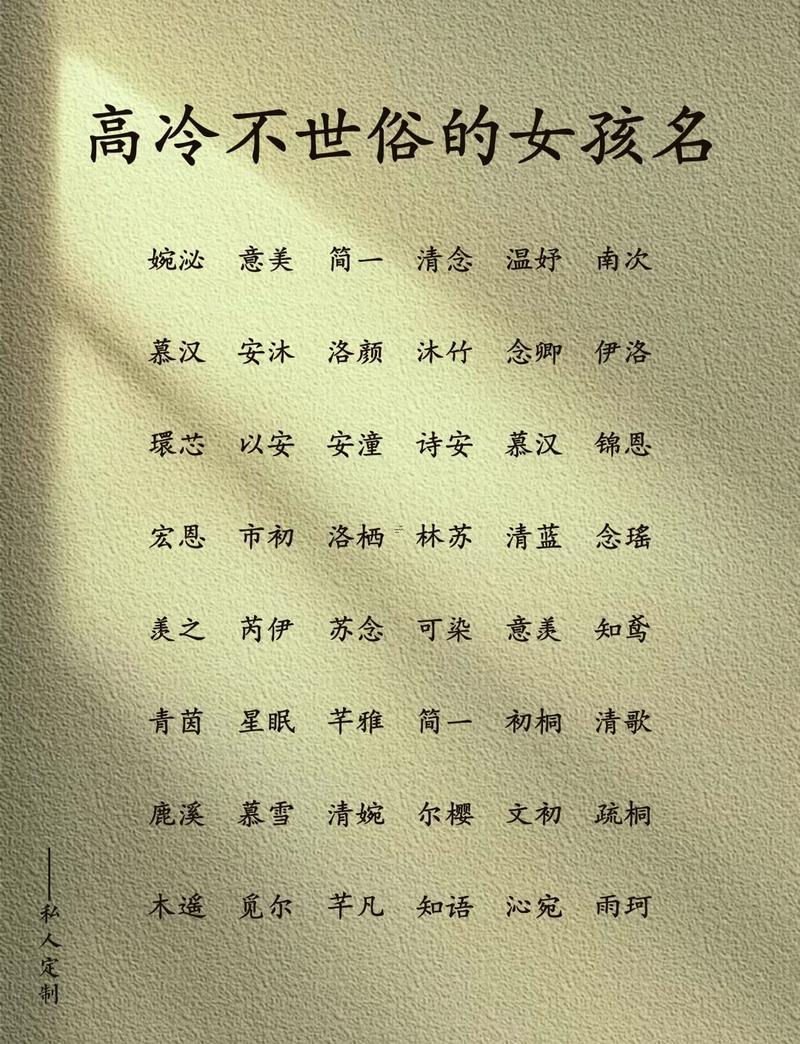 高冷不世俗的女孩名
婉泌 意美 简一 清念 温妤 南次
慕汉 安沐 洛颜 沐竹 念卿 伊洛
環芯 以安 安潼 诗安 慕汉 锦恩
宏恩 市初 洛栖 林苏 清蓝 念瑶
羡之 芮伊 苏念 可染 意羡 知鸢
青茵 星眠 芊雅 简一 初桐 清歌
鹿溪 慕雪 清婉 尔樱 文初 疏桐
木遥 觅尔 芊凡 知语 沁宛 雨珂
——私人定制